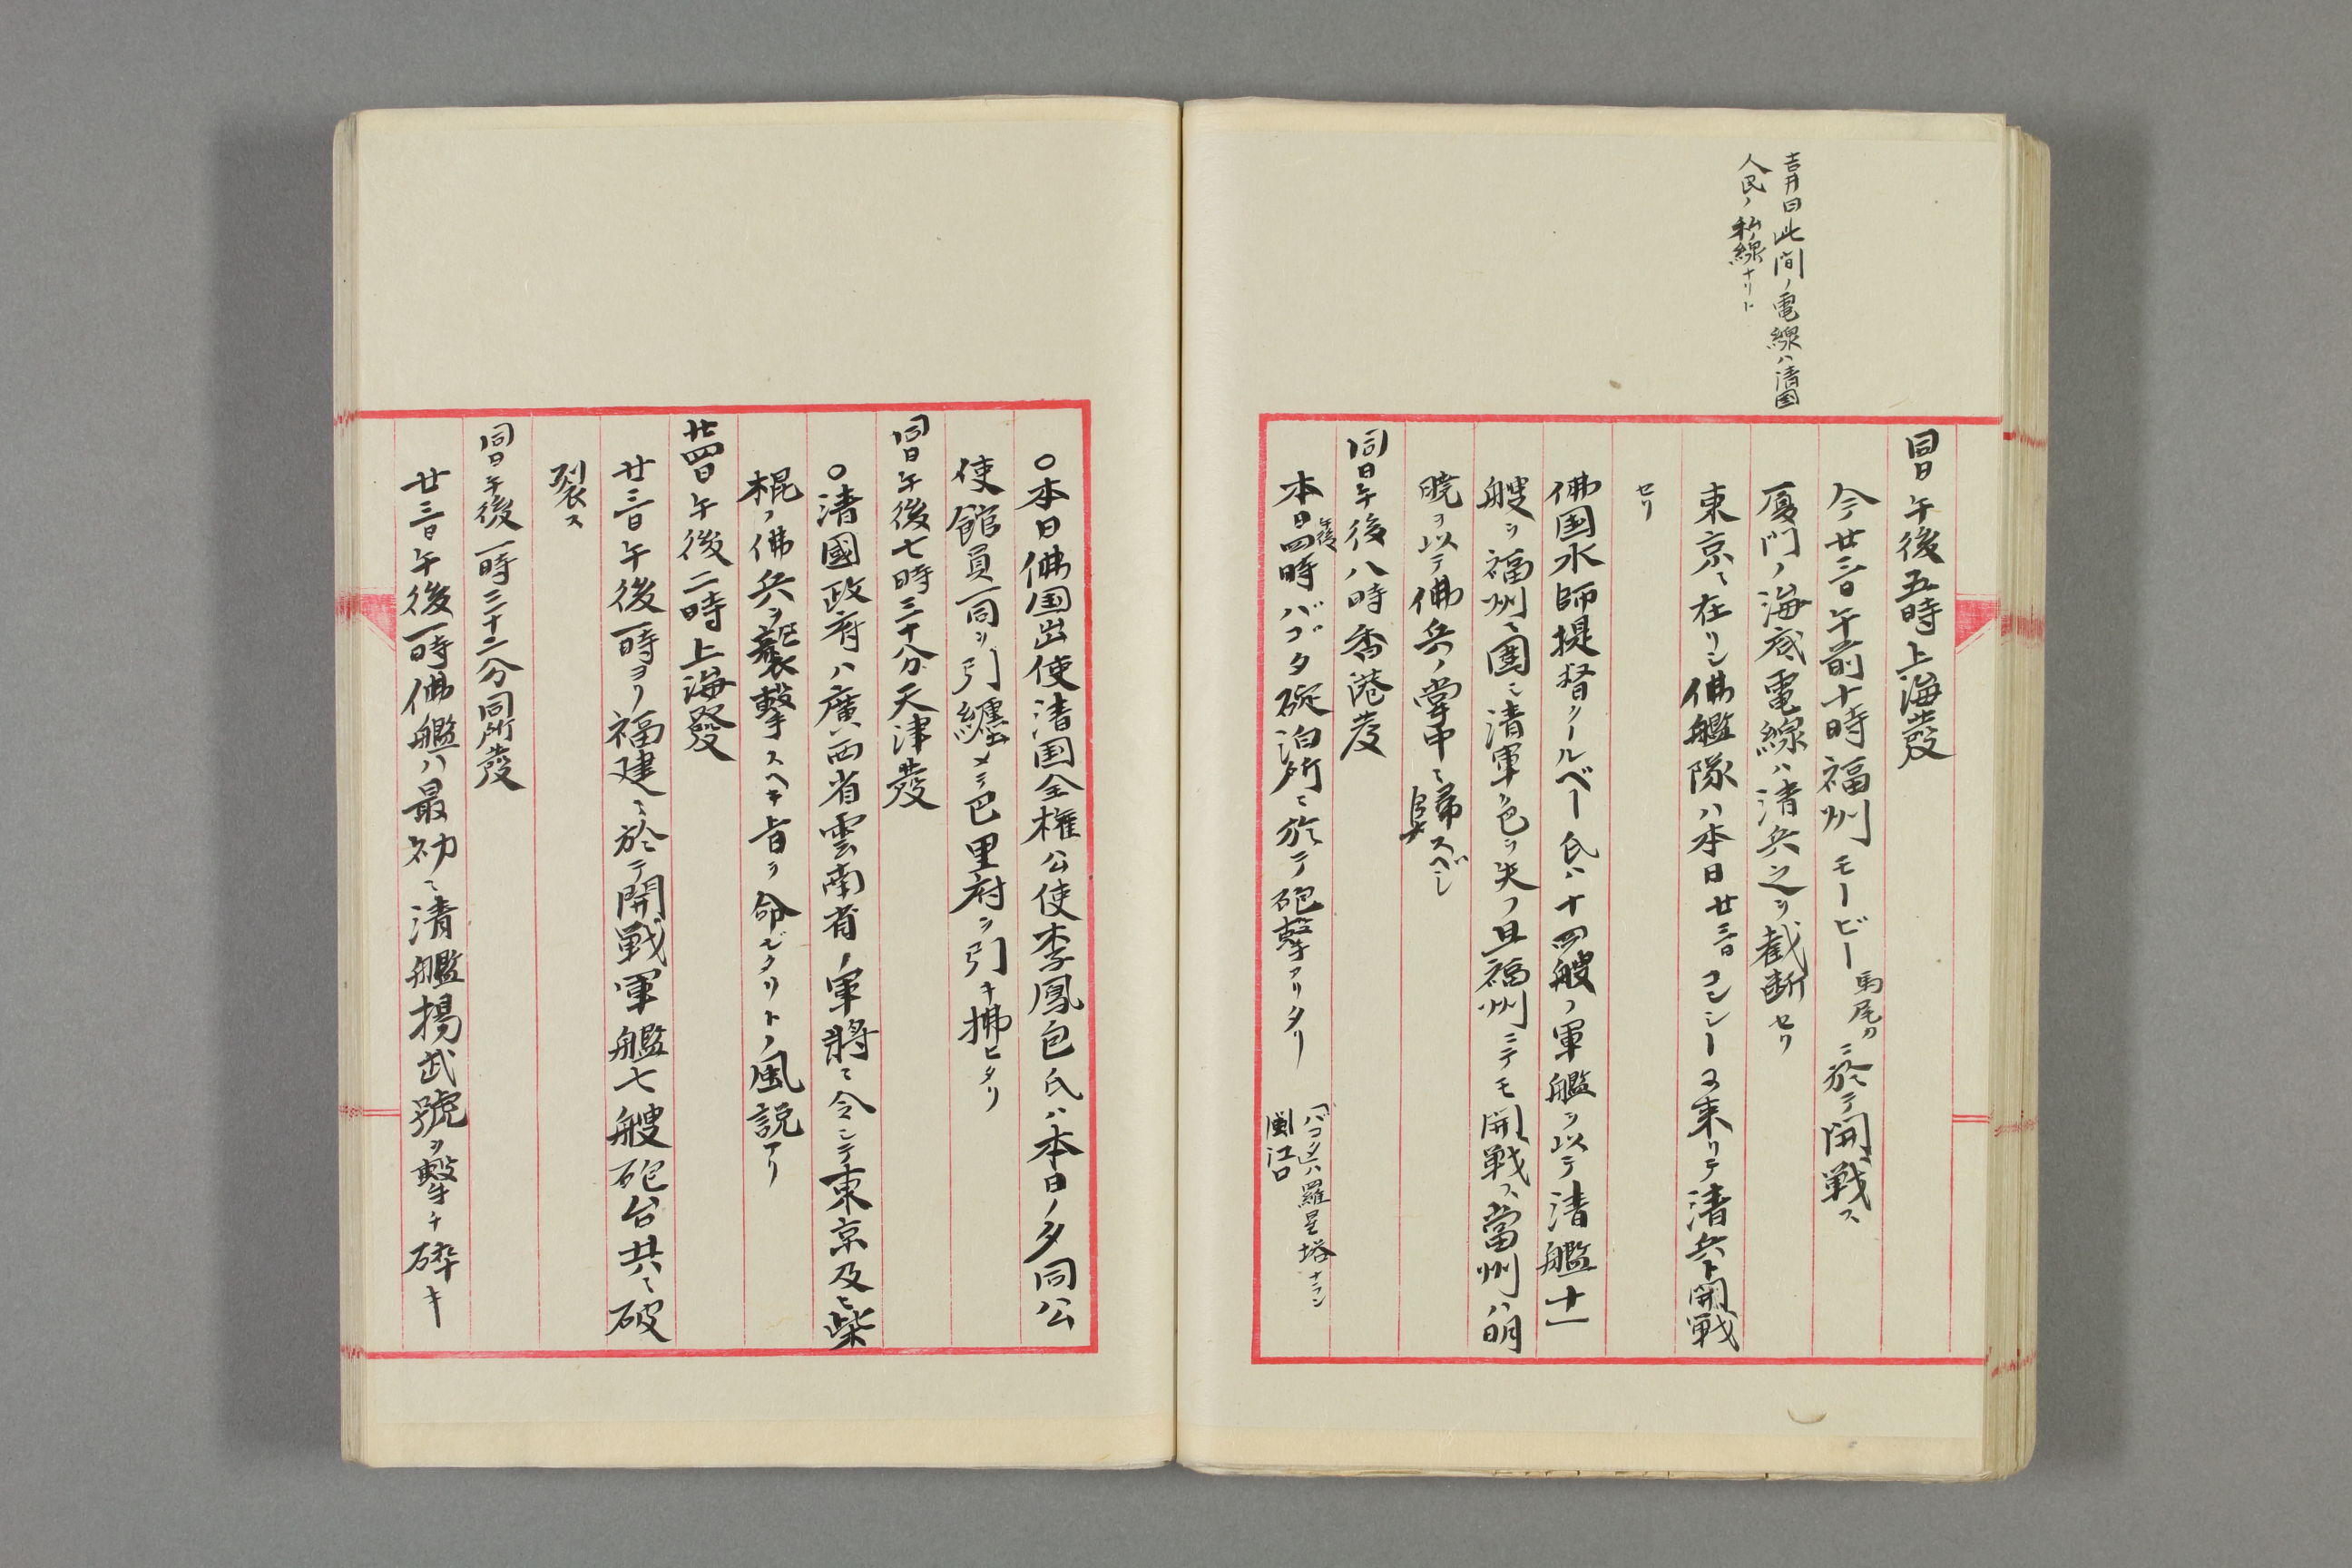 吉井曰此間ノ電線ハ清国
人民ノ私線ナリト
同日午後五時上海發
今廿三日午前十時福州モービー馬尾カニ於テ開戦ス
厦門ノ海底電線ハ清兵之ヲ截断セリ
東京ニ在リシ佛艦隊ハ本日廿三日コンシーヌ来リテ清兵ト開戦
セリ
佛国水師提督クールベー氏ハ十四艘ノ軍艦ヲ以テ清艦十一
艘ヲ福州ニ囲ミ清軍色ヲ失フ且福州ニテモ開戦ス當州ハ明
暁ヲ以テ佛兵ノ掌中ニ歸スベシ
同日午後八時香港發
本日午後四時バゴタ碇泊所ニ於テ砲撃アリタリ
「バゴタ」ハ羅星塔ナラン
閩江口
○本日佛国出使清国全権公使李鳳包氏ハ本日ノ夕同公
使館員一同ヲ引纏メテ巴里府ヲ引キ拂ヒタリ
同日午後七時三十分天津發
○清國政府ハ廣西省雲南省ノ軍将ニ令シテ東京及ヒ柴
棍ノ佛兵ヲ襲撃スヘキ旨ヲ命ジタリトノ風説アリ
廿四日午後二時上海發
廿三日午後一時ヨリ福建ニ於テ開戦軍艦七艘砲台共ニ破
裂ス
同日午後一時三十二分同所發
廿三日午後一時佛艦ハ最初ニ清艦揚武號ヲ撃チ砕キ